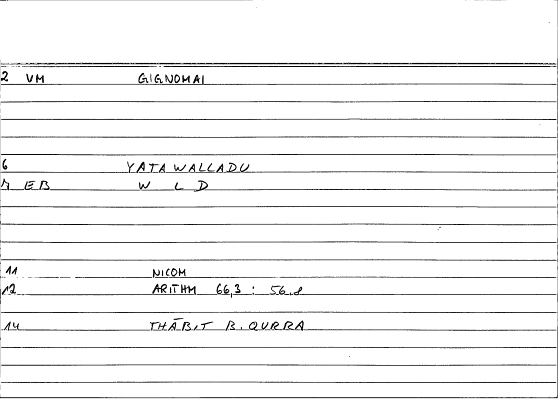 2 VM GIGNOMAI
6 YATAWALLADU
7 EB W L D
11 NICOM
12 ARITHM 66,3 : 56.8
14 THĀBIT B. QURRA